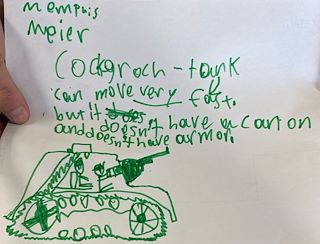 Memphis
Meier
Cockgroch-tank
can move very fast.
but it does doesn't have a canton
and doesn't have armor.